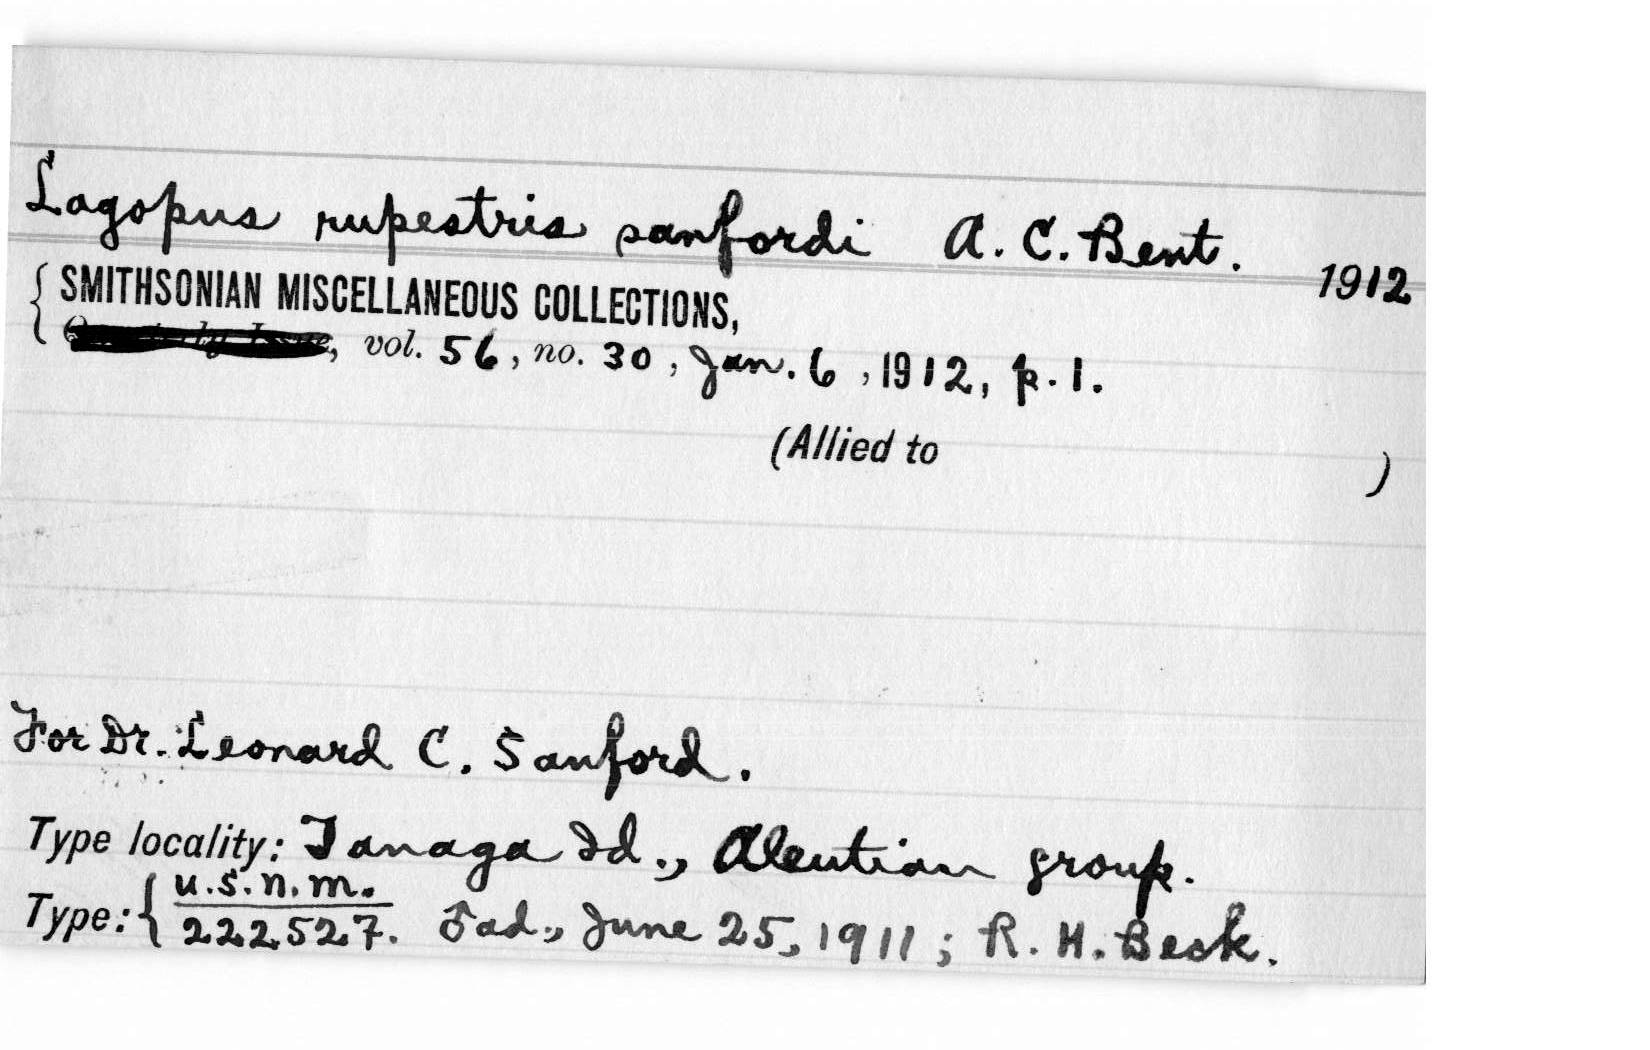 Lagopus rupestris sanfordi A. C. Bent.
1912
SMITHSONIAN MISCELLANEOUS COLLECTIONS,
Quarterly Issue, vol. 56, no. 30, Jan. 6, 1912, p. 1.
(Allied to )
For Dr. Leonard C. Sanford.
Type locality: Tanaga Id., Aleutian group.
Type: { U.S.N.M.
222527. ♂ad., June 25, 1911; R. H. Beck.